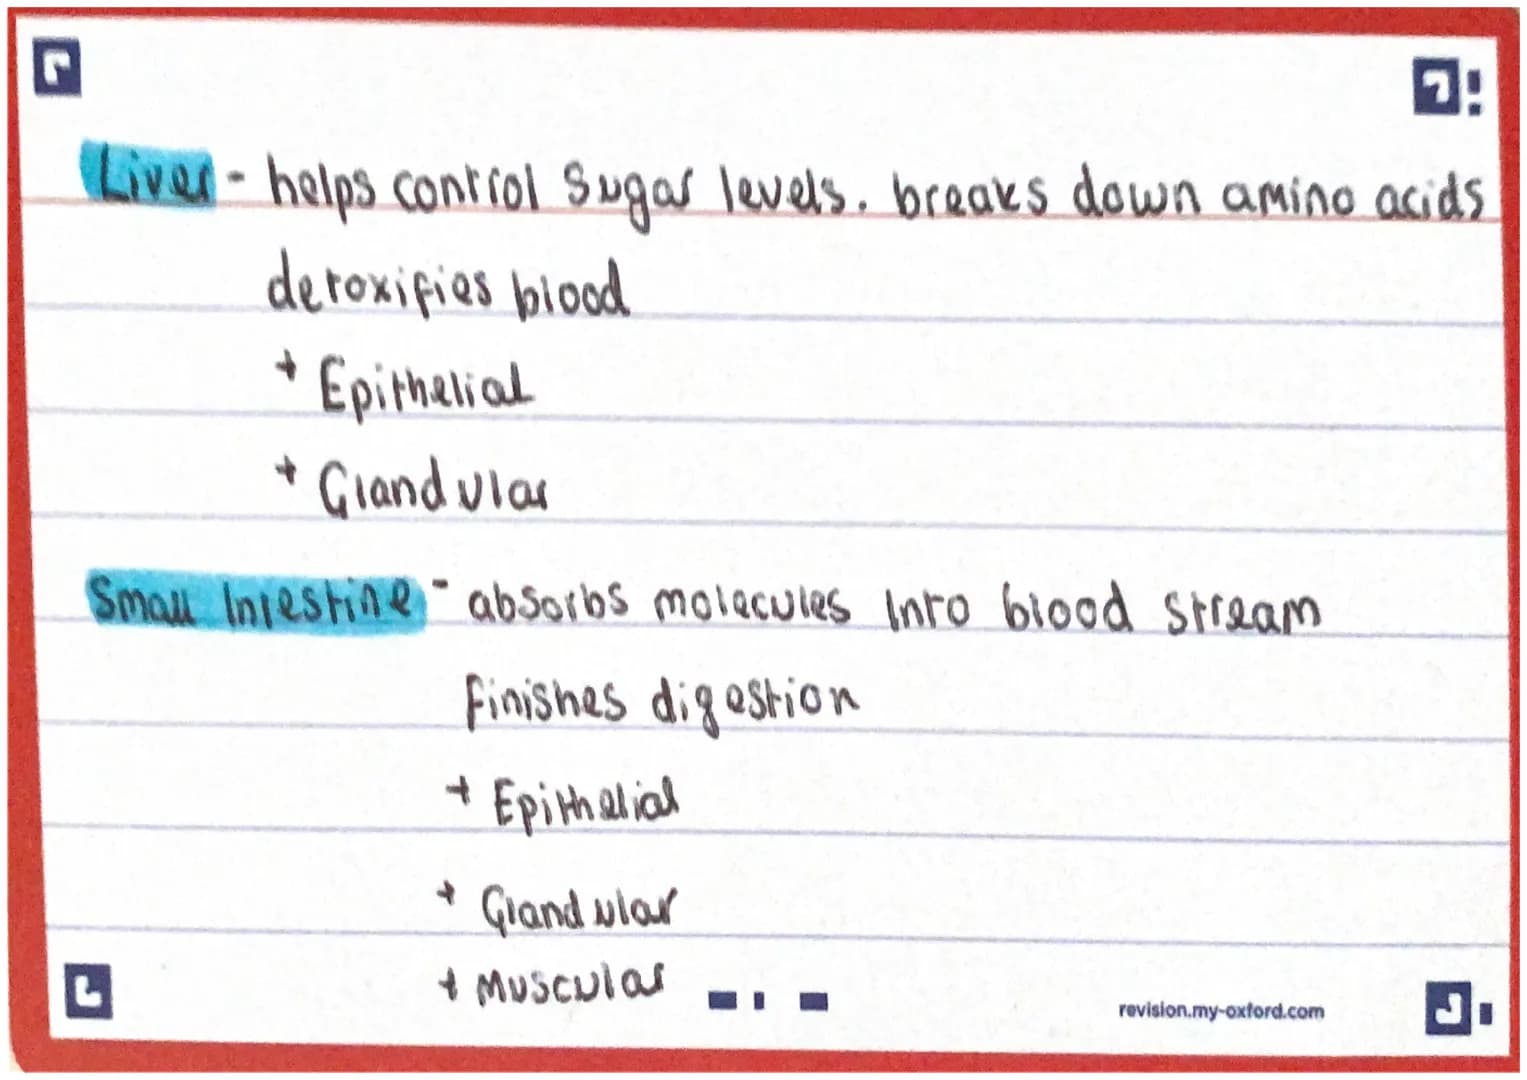 Liver - helps control sugar levels. breaks down amino acids
detoxifies blood
+ Epithelial
+ Glandular
Small Intestine - absorbs molecules into blood stream
finishes digestion
+ Epithelial
+ Glandular
+ Muscular
revision.my-oxford.com